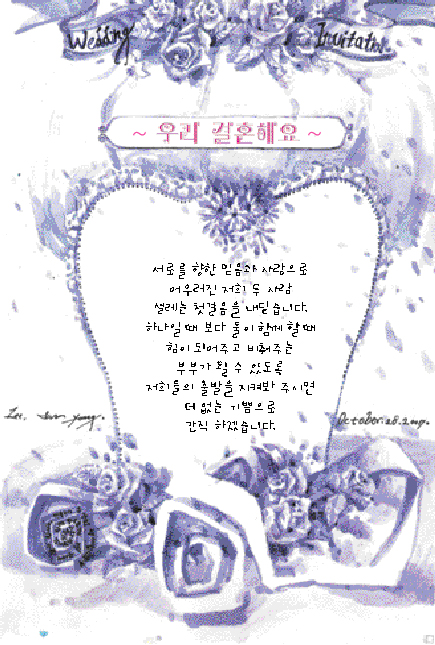 Wedding Invitation
~ 우리 결혼해요 ~
서로를 향한 믿음과 사랑으로
어우러진 저희 두 사람
설레는 첫걸음을 내딛습니다.
하나일 때 보다 둘이 함께 할 때
힘이 되어주고 비춰주는
부부가 될 수 있도록
저희들의 출발을 지켜봐 주시면
더 없는 기쁨으로
간직 하겠습니다.
October.28.2007.